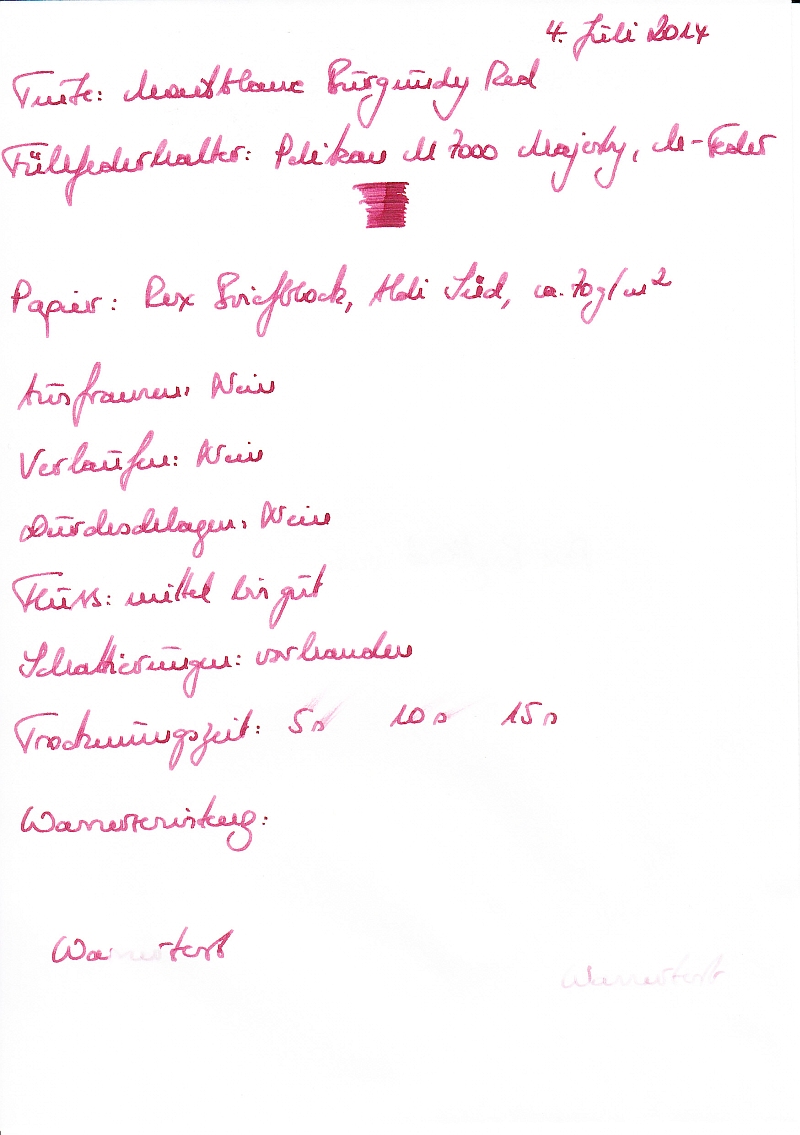 4. Juli 2014
Tinte: Montblanc Burgundy Red
Füllfederhalter: Pelikan M 7000 Majesty, M-Feder
Papier: Rex Briefblock, Aldi Süd, ca. 70g/m²
Ausfransen: Nein
Verlaufen: Nein
Durchschlagen: Nein
Fluss: mittel bis gut
Schattierungen: vorhanden
Trocknungszeit: 5s 10s 15s
Wasserfestigkeit:
Wassertest
Wassertest